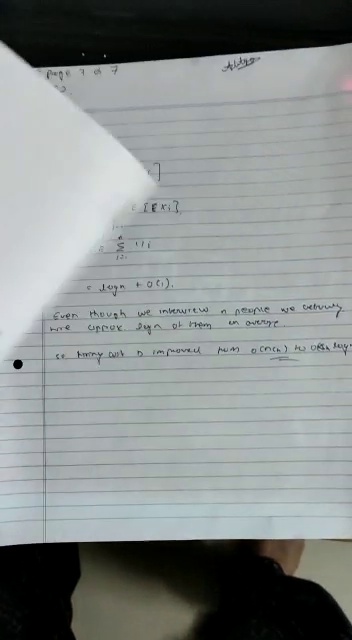 Page 7 of 7
]
E [E Xi]
= Σ 1/i
i=1
= logn + O(1).
Even though we interview n people we actually
hire approx logn of them on average.
so hiring cost is improved from O(nCh) to